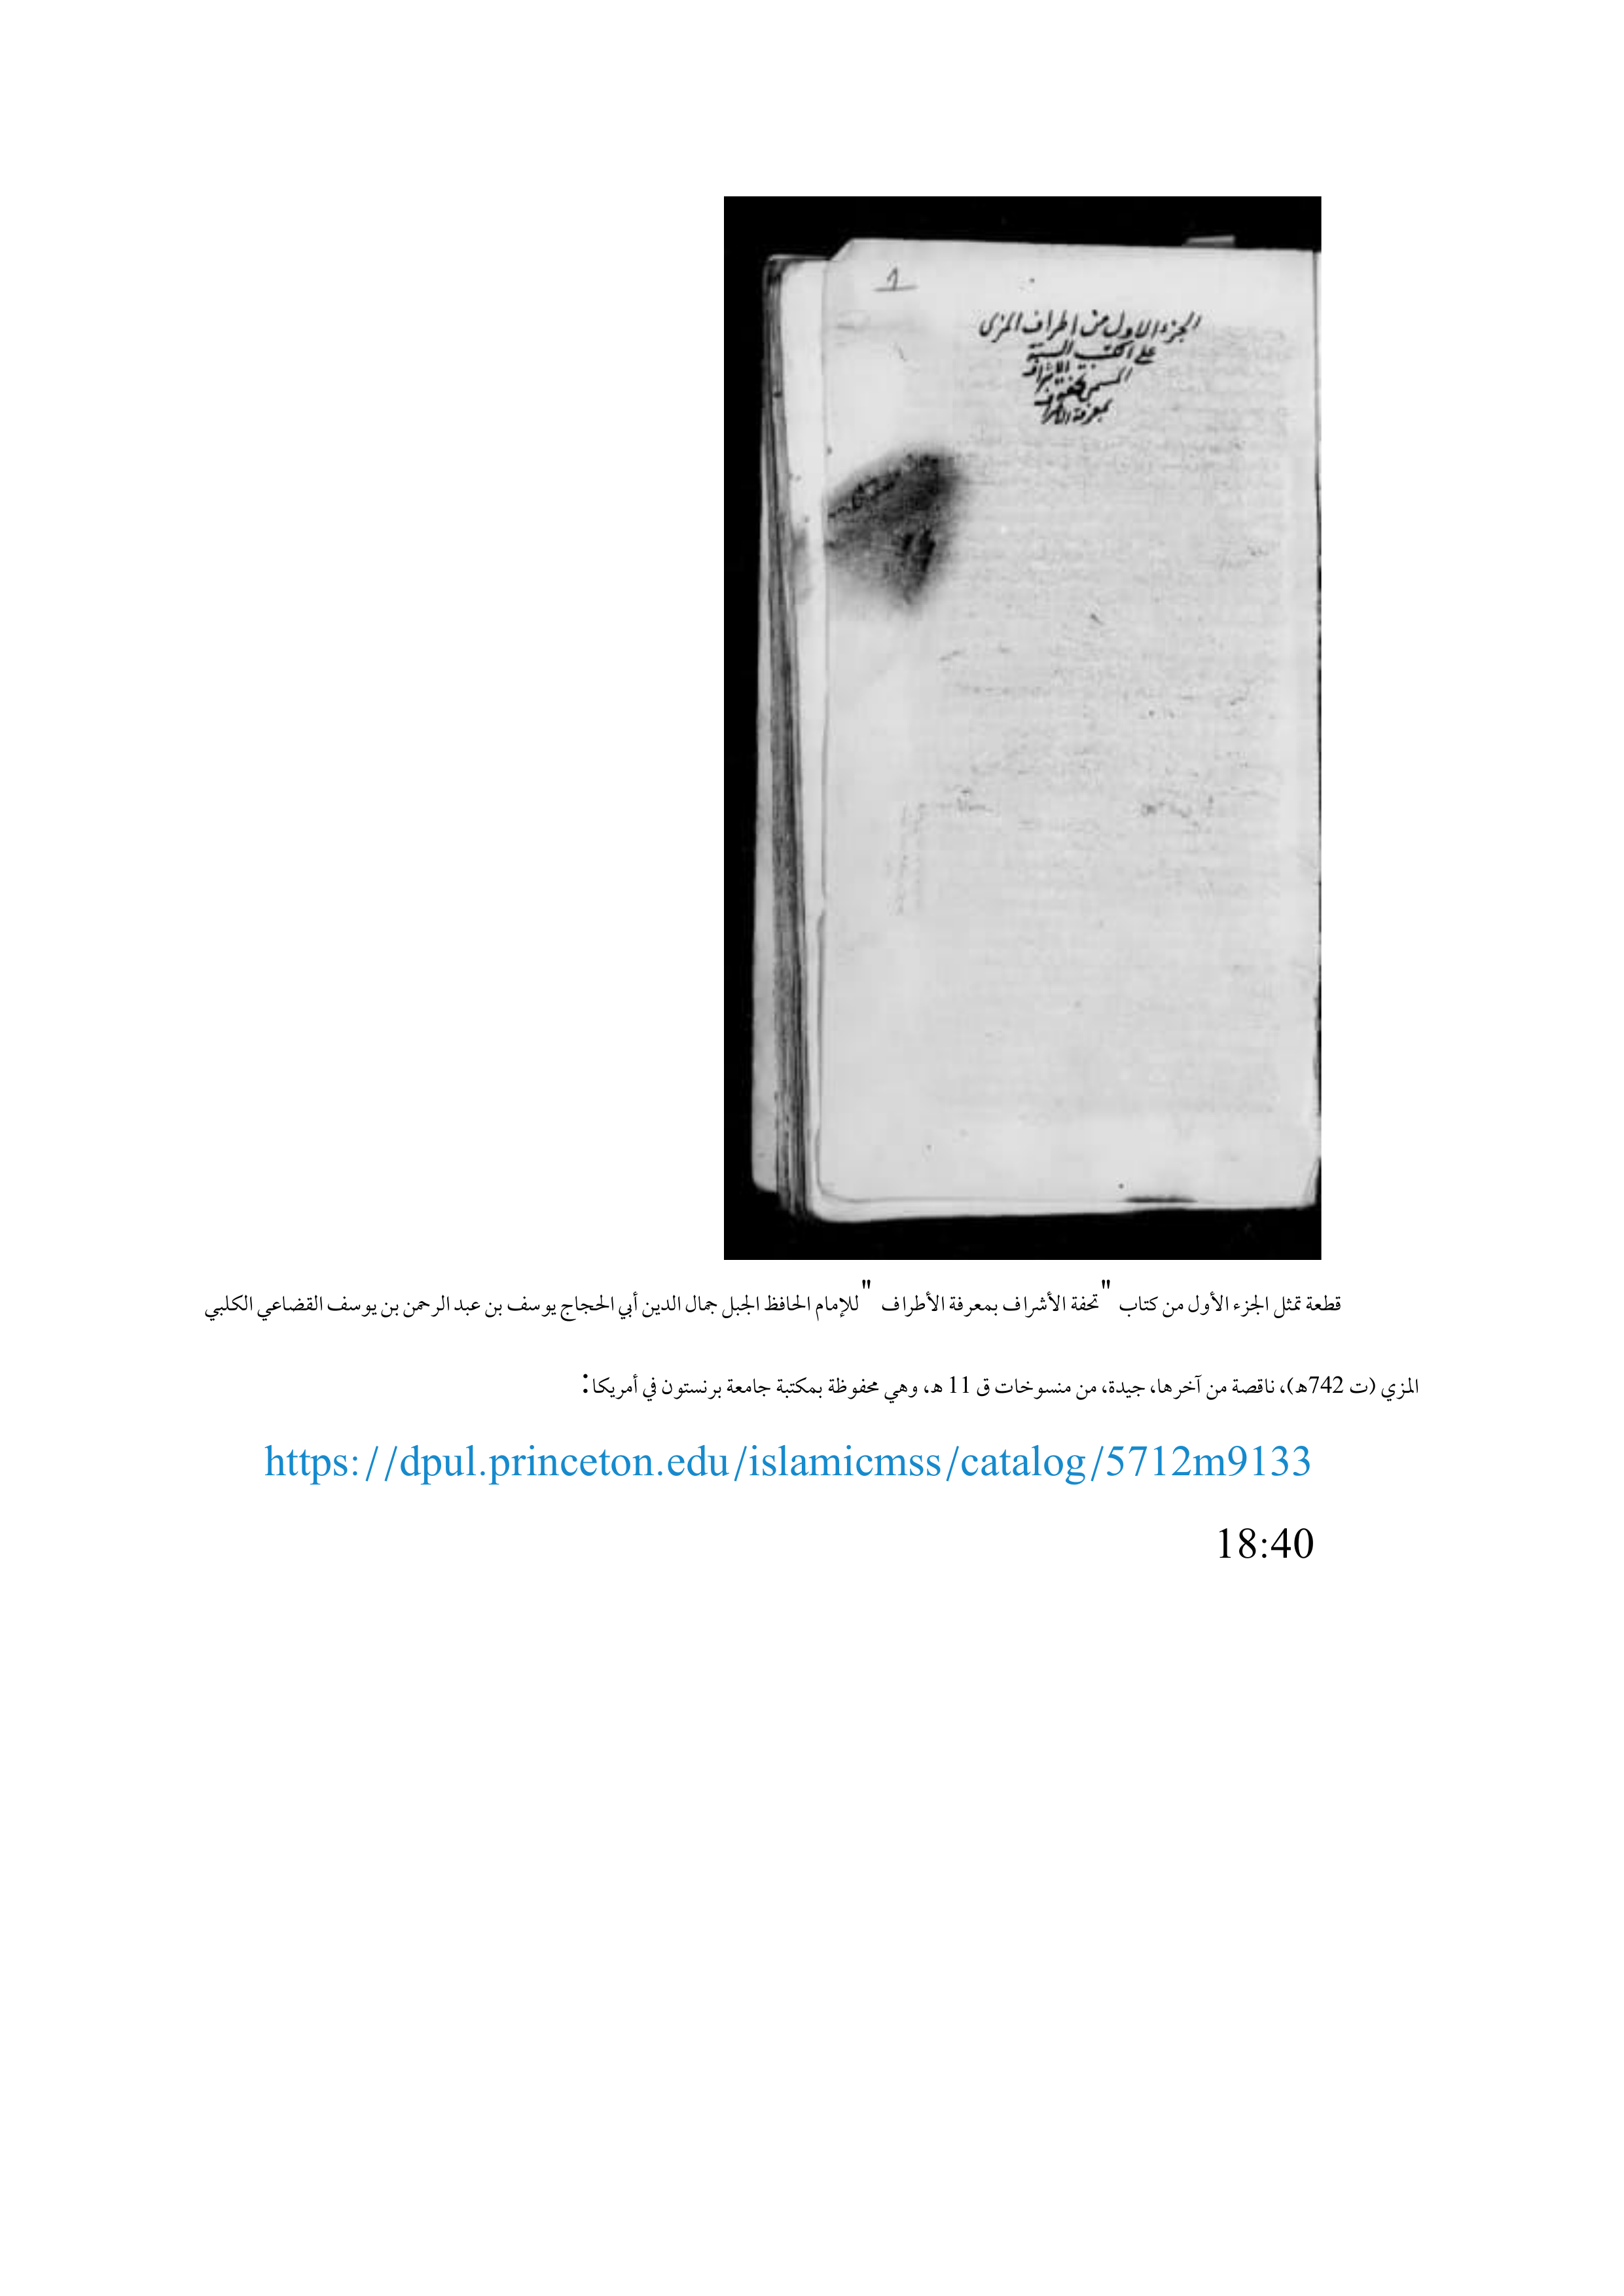 1
الجزء الاول من اطراف المزى
على الكتب الستة
المسمى بتحفة الاشراف
بمعرفة الاطراف
قطعة تمثل الجزء الأول من كتاب "تحفة الأشراف بمعرفة الأطراف" للإمام الحافظ الجبل جمال الدين أبي الحجاج يوسف بن عبد الرحمن بن يوسف القضاعي الكلبي
المزي (ت 742هـ)، ناقصة من آخرها، جيدة، من منسوخات ق 11 هـ، وهي محفوظة بمكتبة جامعة برنستون في أمريكا:
https://dpul.princeton.edu/islamicmss/catalog/5712m9133
18:40